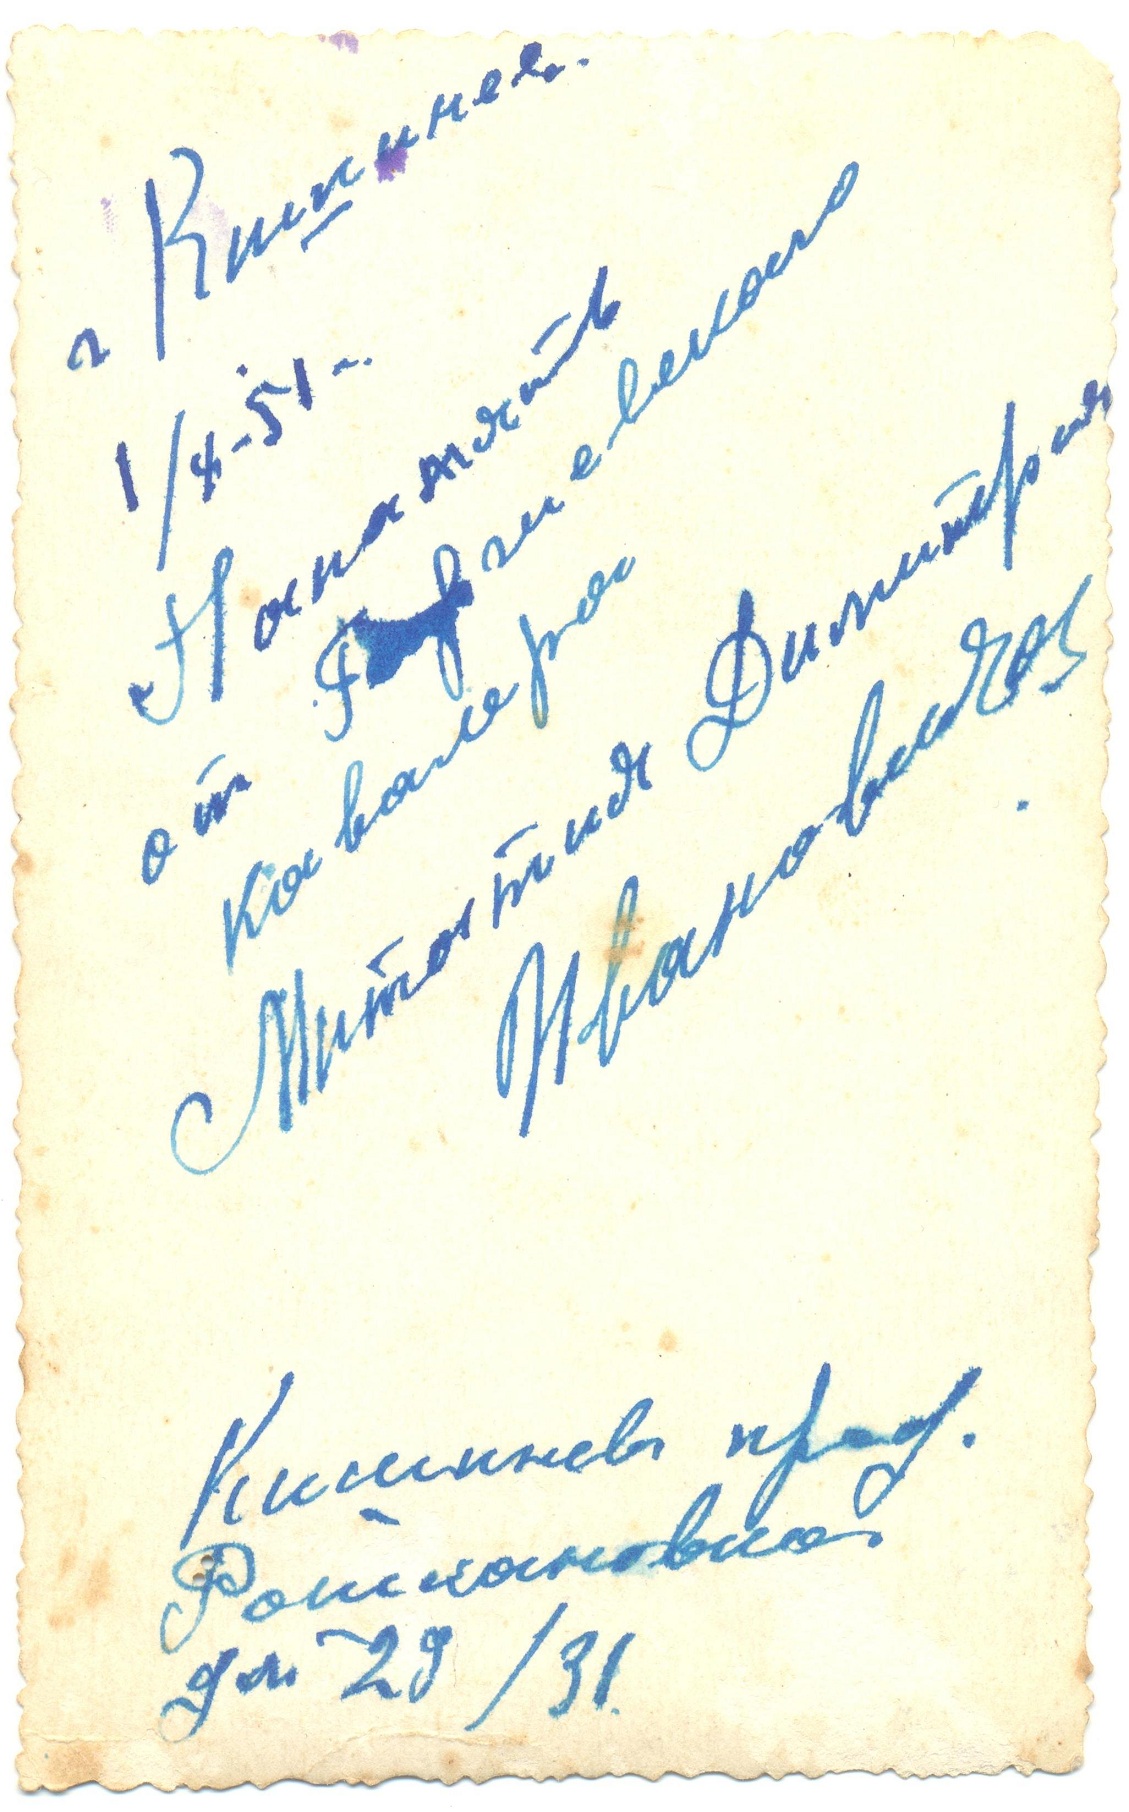 г Кишинев.
1/4-51 г.
На память
от Гвргиевского
кавалера
Митатия Димитрия
Ивановича
Кишинев
Рошкановка
дм 29/31.